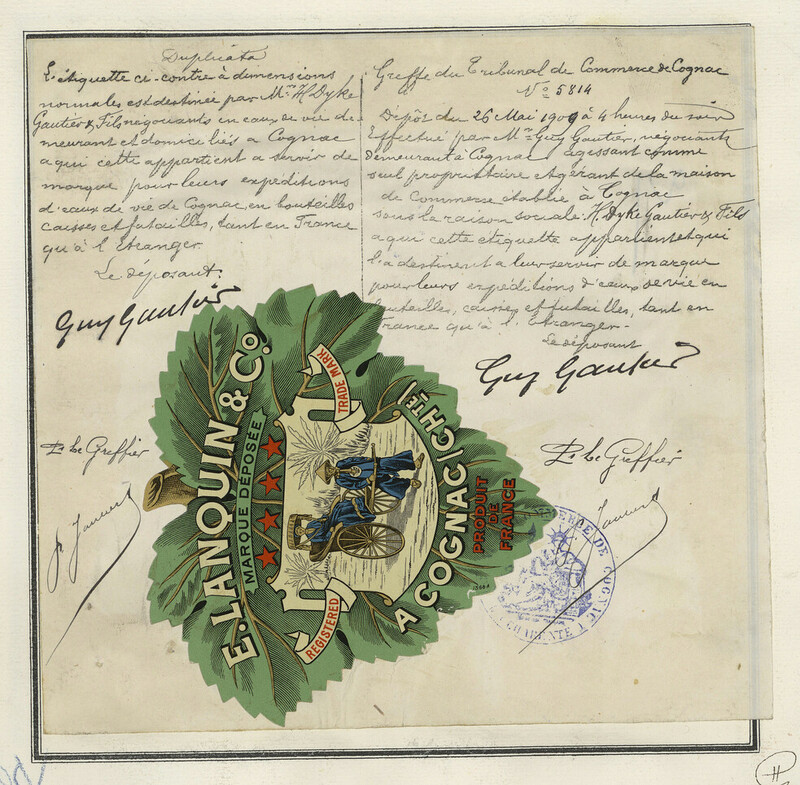 Duplicata
L'étiquette ci-contre à dimensions
normales est destinée par Mrs H. Dyke
Gautier & Fils négociants en eaux de vie de
meurant et domiciliés a Cognac
a qui cette appartient a servir de
marque pour leurs expéditions
d'eaux de vie de Cognac, en bouteilles
caisses et futailles, tant en France
qu'à l'Etranger.
Le déposant.
Guy Gautier
P. Le Greffier
Greffe du Tribunal de Commerce de Cognac
No 5814
Dépôt du 26 Mai 1909 à 4 heures du soir
Effectué par Mr Guy Gautier, négociant
demeurant à Cognac agissant comme
seul propriétaire et gérant de la maison
de Commerce établie à Cognac
sous la raison sociale: H. Dyke Gautier & Fils
a qui cette étiquette appartient et qui
l'a destinent a leur servir de marque
pour leurs expéditions d'eaux de vie en
bouteilles, caisses et futailles, tant en
France qu'à l'Etranger.
Le déposant
Guy Gautier
P. Le Greffier
E. LANQUIN & Co.
MARQUE DÉPOSÉE
TRADE MARK
REGISTERED
A COGNAC (CHTE)
PRODUIT
DE
FRANCE
DE COGNAC
CHARENTE
H